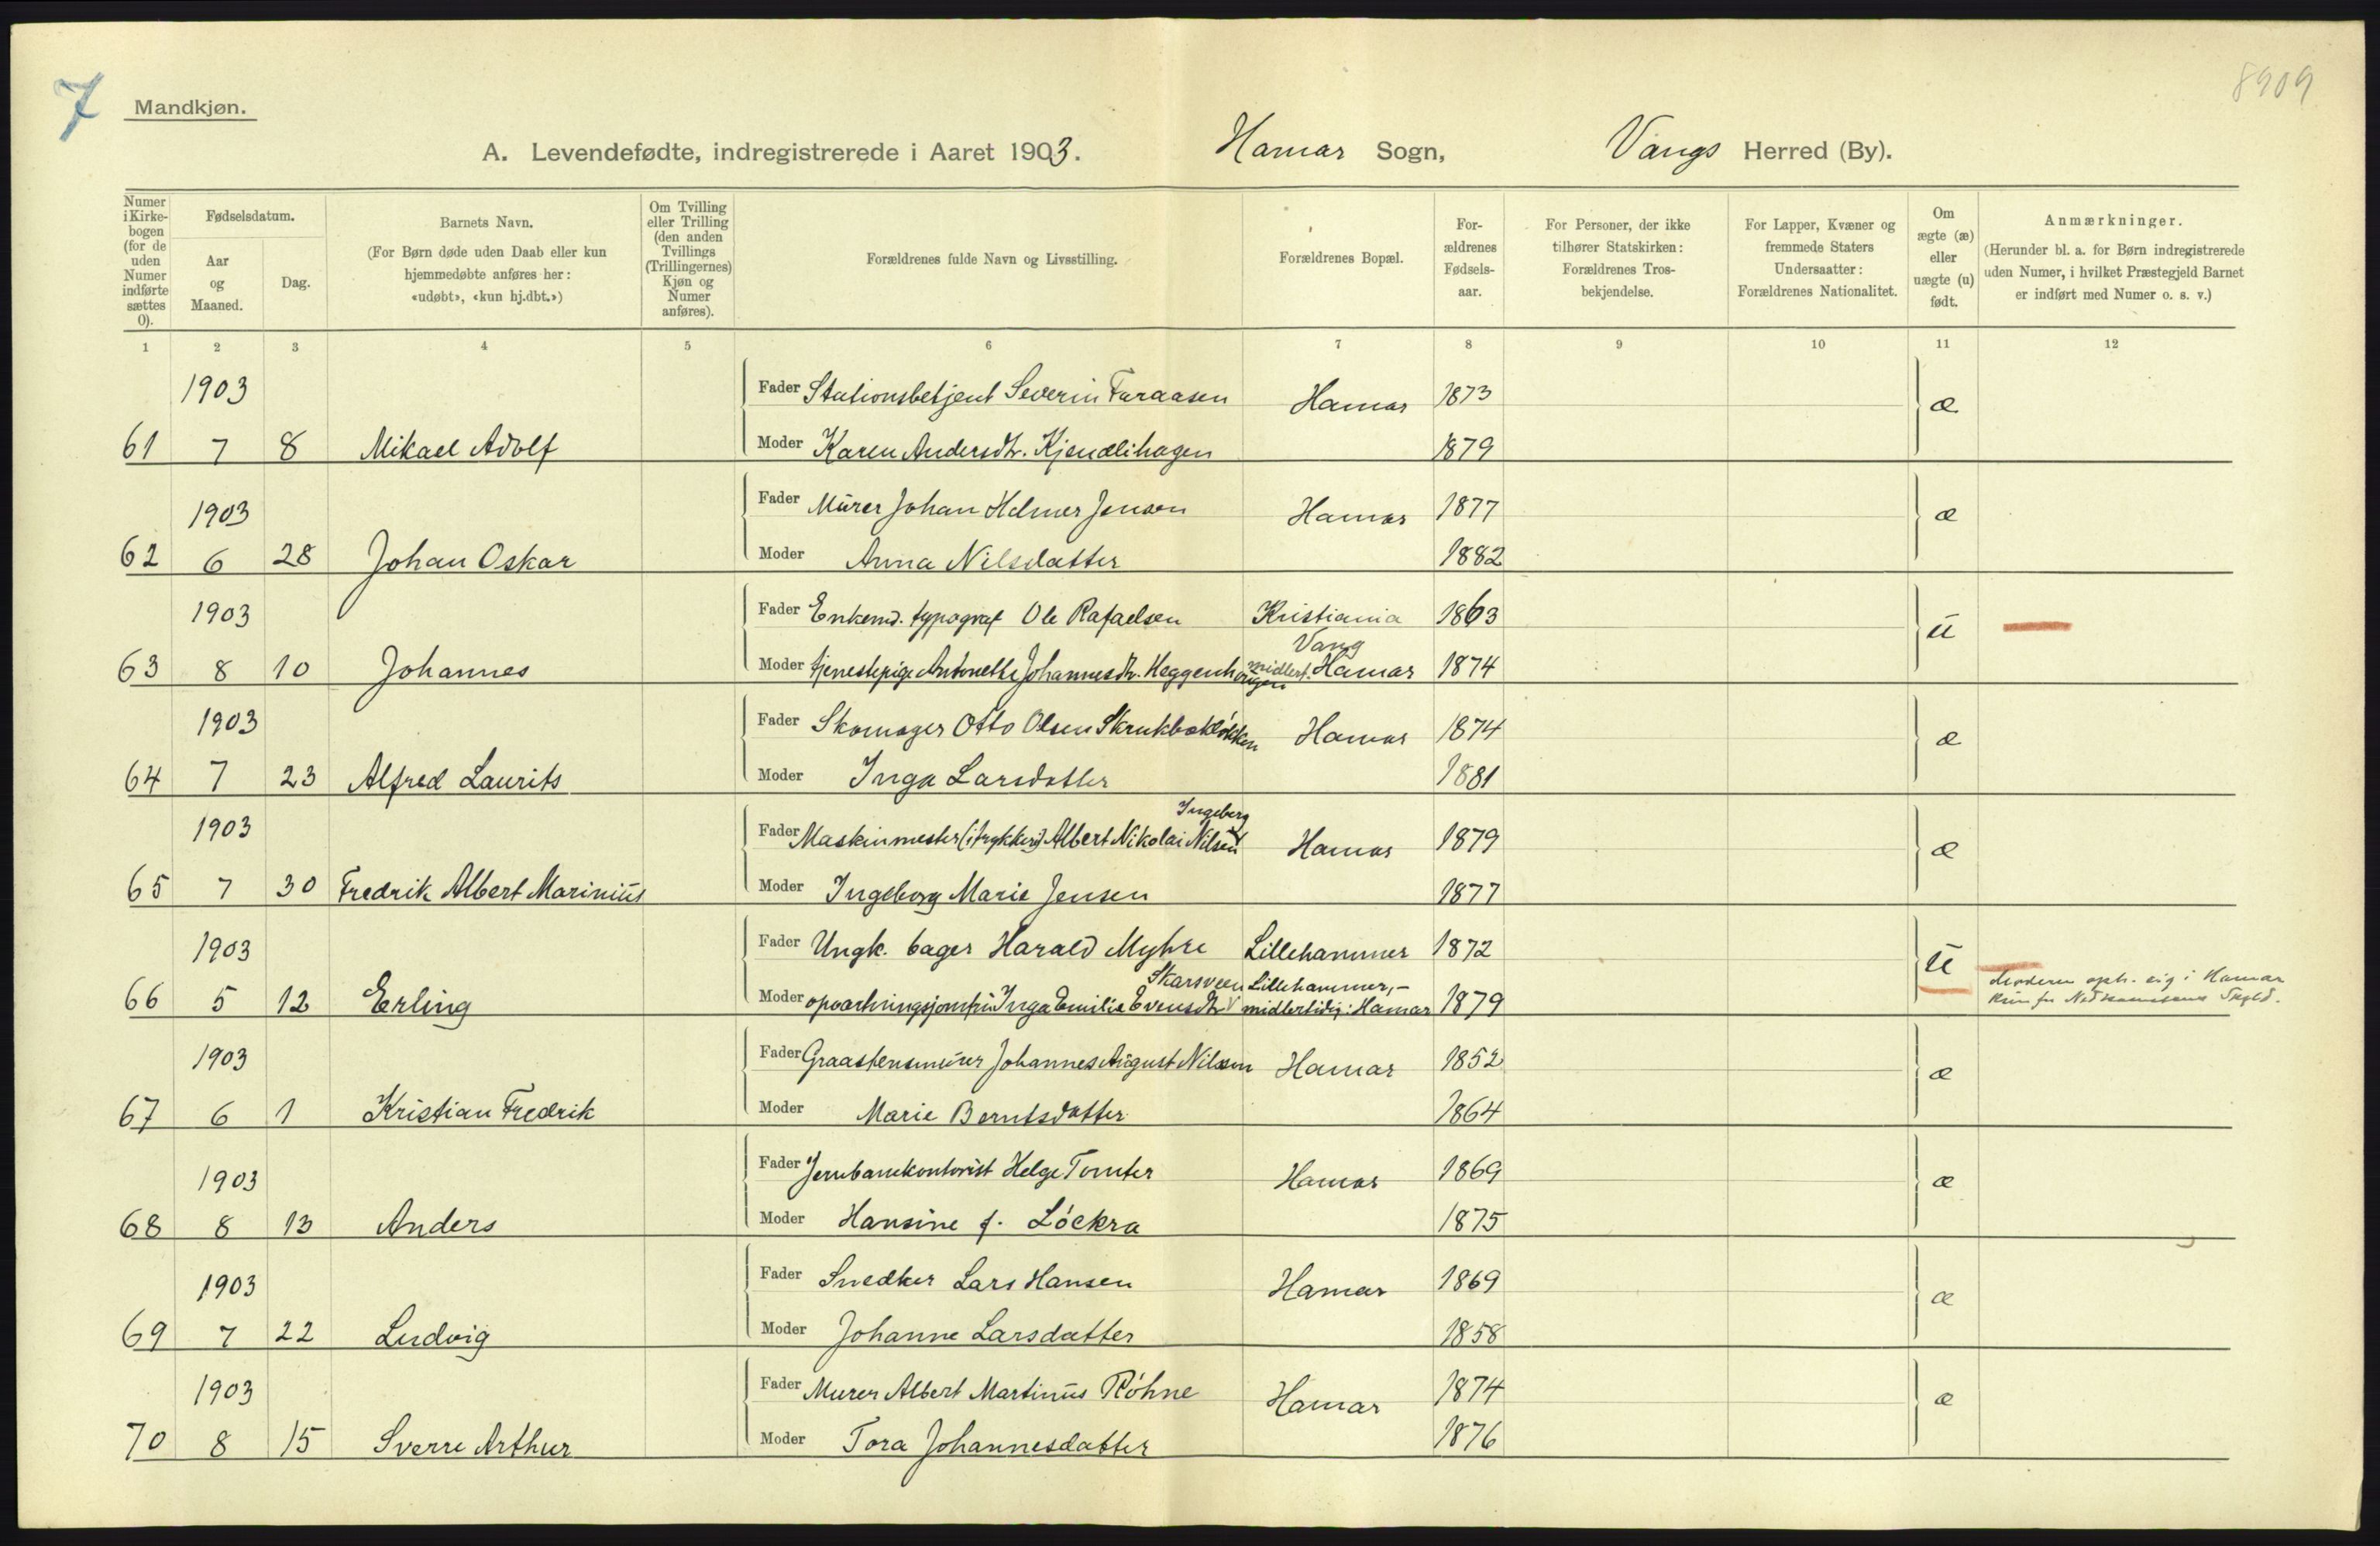 7
Mandkjøn.
8909
A. Levendefødte, indregistrerede i Aaret 1903. Hamar Sogn, Vangs Herred (By).
Numer i Kirkebogen (for de uden Numer indførte sættes 0).
Fødselsdatum.
Aar og Maaned.
Dag.
Barnets Navn.
(For Børn døde uden Daab eller kun hjemmedøbte anføres her: «udøbt», «kun hj.dbt.»)
Om Tvilling eller Trilling (den anden Tvillings (Trillingernes) Kjøn og Numer anføres).
Forældrenes fulde Navn og Livsstilling.
Forældrenes Bopæl.
For-ældrenes Fødsels-aar.
For Personer, der ikke tilhører Statskirken: Forældrenes Tros-bekjendelse.
For Lapper, Kvæner og fremmede Staters Undersaatter: Forældrenes Nationalitet.
Om ægte (æ) eller uægte (u) født.
Anmærkninger.
(Herunder bl. a. for Børn indregistrerede uden Numer, i hvilket Præstegjeld Barnet er indført med Numer o. s. v.)
1 2 3 4 5 6 7 8 9 10 11 12
1903 Fader Stationsbetjent Severin Furaasen Hamar 1873 æ
61 7 8 Mikael Adolf Moder Karen Andersdtr. Kjendlihagen 1879
1903 Fader Murer Johan Helmer Jensen Hamar 1877 æ
62 6 28 Johan Oskar Moder Anna Nilsdatter 1882
1903 Fader Enkemd. typograf Ole Rafaelsen Kristiania 1863 u
Vang
63 8 10 Johannes Moder tjenestepige Antonette Johannesdtr. Heggenhaugen midlert. Hamar 1874
1903 Fader Skomager Otto Olsen Skrukbækløkken Hamar 1874 æ
64 7 23 Alfred Laurits Moder Inga Larsdatter 1881
Ingeberg
1903 Fader Maskinmester (i trykkeri) Albert Nikolai Nilsen Hamar 1879 æ
65 7 30 Fredrik Albert Marinius Moder Ingeborg Marie Jensen 1877
1903 Fader Ungk. bager Harald Myhre Lillehammer 1872 u
Skarsveen Lillehammer,- Moderen oph. sig i Hamar
66 5 12 Erling Moder opvartningsjomfru Inga Emilie Evensdtr midlertidig: Hamar 1879 kun for Nedkomstens Skyld.
1903 Fader Graastensmurer Johannes August Nilsen Hamar 1852 æ
67 6 1 Kristian Fredrik Moder Marie Berntsdatter 1864
1903 Fader Jernbanekontorist Helge Tomter Hamar 1869 æ
68 8 13 Anders Moder Hansine f. Löckra 1875
1903 Fader Snedker Lars Hansen Hamar 1869 æ
69 7 22 Ludvig Moder Johanne Larsdatter 1858
1903 Fader Murer Albert Martinus Røhne Hamar 1874 æ
70 8 15 Sverre Arthur Moder Tora Johannesdatter 1876